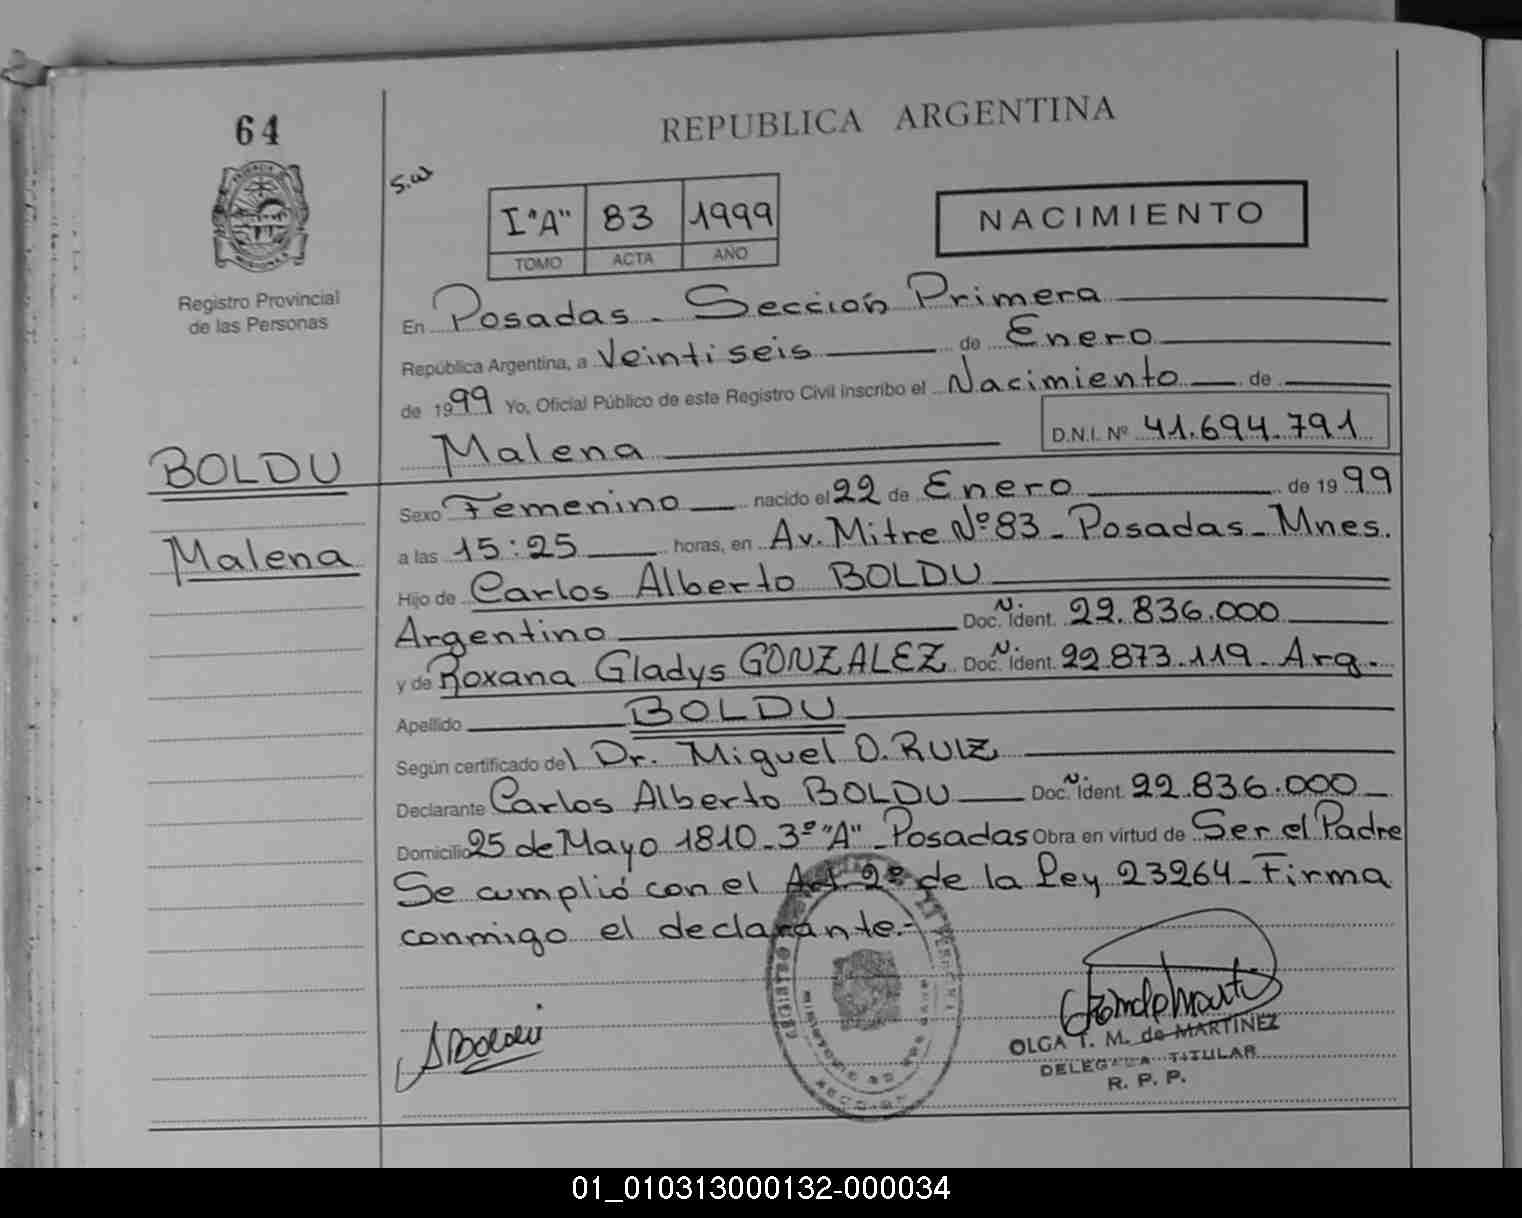 64
REPUBLICA ARGENTINA
s.w
I "A" 83 1999
TOMO ACTA AÑO
NACIMIENTO
Registro Provincial
de las Personas
En Posadas - Sección Primera
República Argentina, a Veintiseis de Enero
de 1999 Yo, Oficial Público de este Registro Civil inscribo el Nacimiento de
Malena D.N.I. Nº 41.694.791
BOLDU
Malena
Sexo Femenino nacido el 22 de Enero de 1999
a las 15:25 horas, en Av. Mitre Nº 83 - Posadas - Mnes.
Hijo de Carlos Alberto BOLDU
Argentino Doc. N. Ident. 22.836.000
y de Roxana Gladys GONZALEZ Doc. N. Ident. 22.873.119 - Arg.
Apellido BOLDU
Según certificado del Dr. Miguel O. RUIZ
Declarante Carlos Alberto BOLDU Doc. N. Ident. 22.836.000
Domicilio 25 de Mayo 1810 - 3º "A" - Posadas Obra en virtud de Ser el Padre
Se cumplió con el Art 2º de la Ley 23264 - Firma
conmigo el declarante.-
OLGA T. M. de MARTINEZ
DELEGADA TITULAR
R. P. P.
01_010313000132-000034